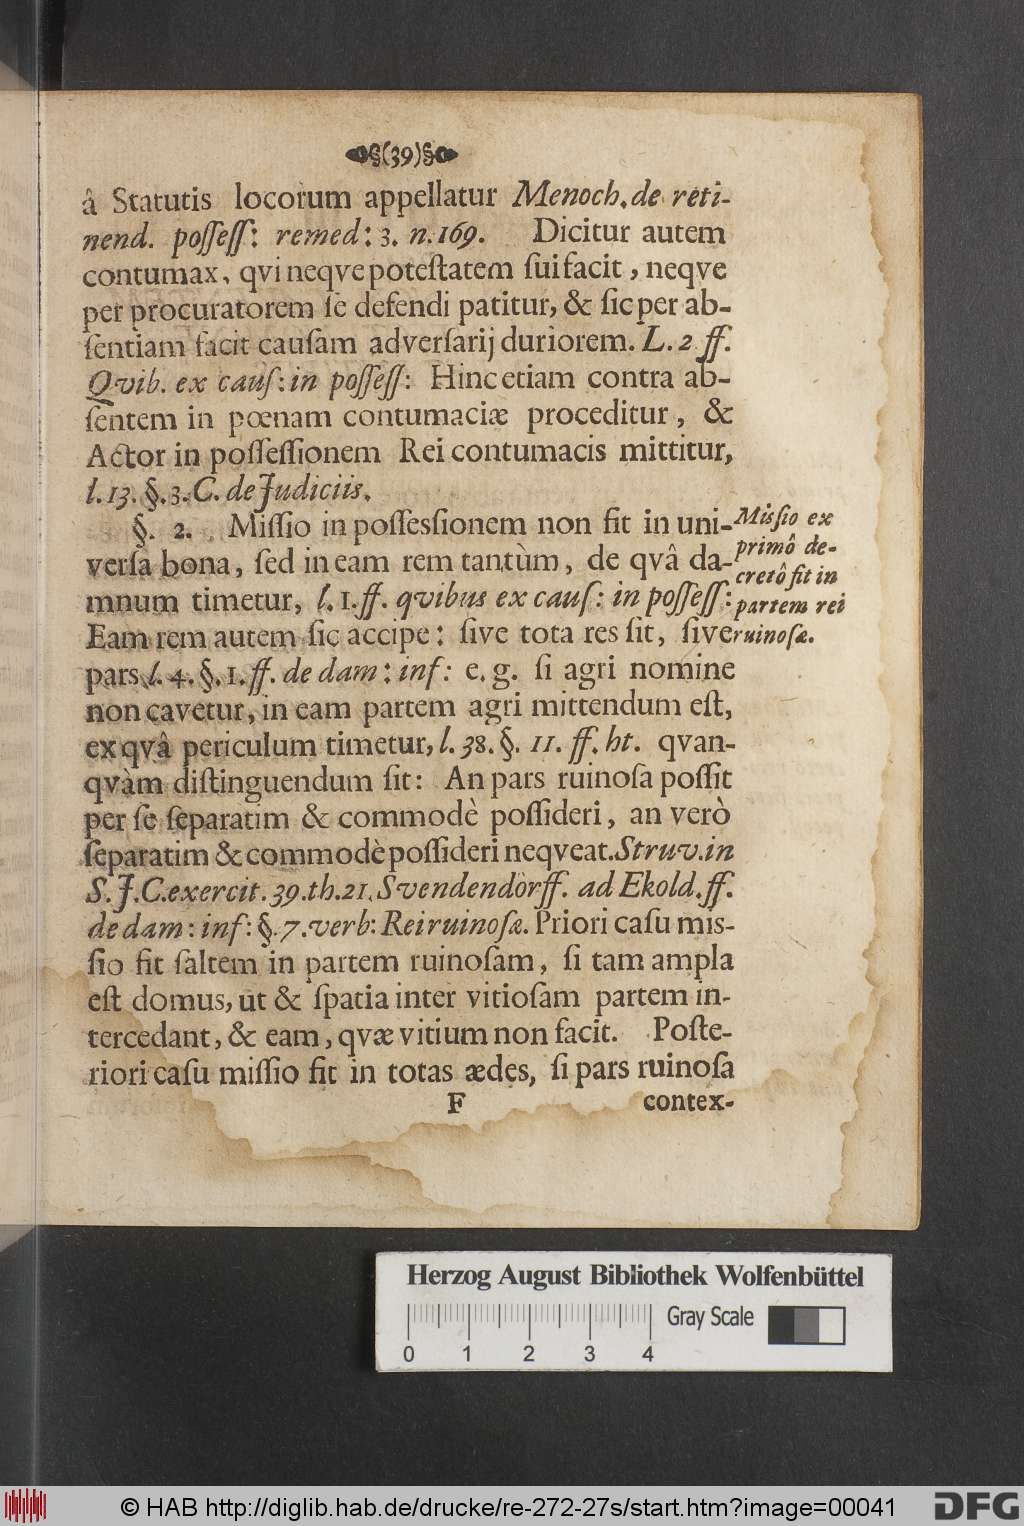 §(39)§
â Statutis locorum appellatur Menoch. de reti-
nend. posſeſſ: remed: 3. n. 169. Dicitur autem
contumax, qvi neqve poteſtatem ſui facit, neqve
per procuratorem ſe defendi patitur, & ſic per ab-
ſentiam facit cauſam adverſarij duriorem. L. 2 ff.
Qvib. ex cauſ: in poſſeſſ: Hinc etiam contra ab-
ſentem in pœnam contumaciæ proceditur, &
Actor in poſſeſſionem Rei contumacis mittitur,
l. 13. §. 3. C. de Judiciis.
§. 2. Miſſio in poſſesſionem non fit in uni-
verſa bona, ſed in eam rem tantùm, de qvâ da-
mnum timetur, l. 1. ff. qvibus ex cauſ: in poſſeſſ:
Eam rem autem ſic accipe: ſive tota res ſit, ſive
pars l. 4. §. 1. ff. de dam: inf: e. g. ſi agri nomine
non cavetur, in eam partem agri mittendum eſt,
ex qvâ periculum timetur, l. 38. §. 11. ff. ht. qvan-
qvàm diſtinguendum ſit: An pars ruinoſa poſſit
per ſe ſeparatim & commodè poſſideri, an verò
ſeparatim & commodè poſſideri neqveat. Struv. in
S. J. C. exercit. 39. th. 21. Svendendörff. ad Ekold. ff.
de dam: inf: §. 7. verb: Rei ruinoſæ. Priori caſu mis-
ſio fit ſaltem in partem ruinoſam, ſi tam ampla
eſt domus, ut & ſpatia inter vitioſam partem in-
tercedant, & eam, qvæ vitium non facit. Poſte-
riori caſu miſſio fit in totas ædes, ſi pars ruinoſa
F contex-
Misſio ex
primô de-
cretô fit in
partem rei
ruinoſæ.
Herzog August Bibliothek Wolfenbüttel
Gray Scale
0 1 2 3 4
© HAB http://diglib.hab.de/drucke/re-272-27s/start.htm?image=00041
DFG